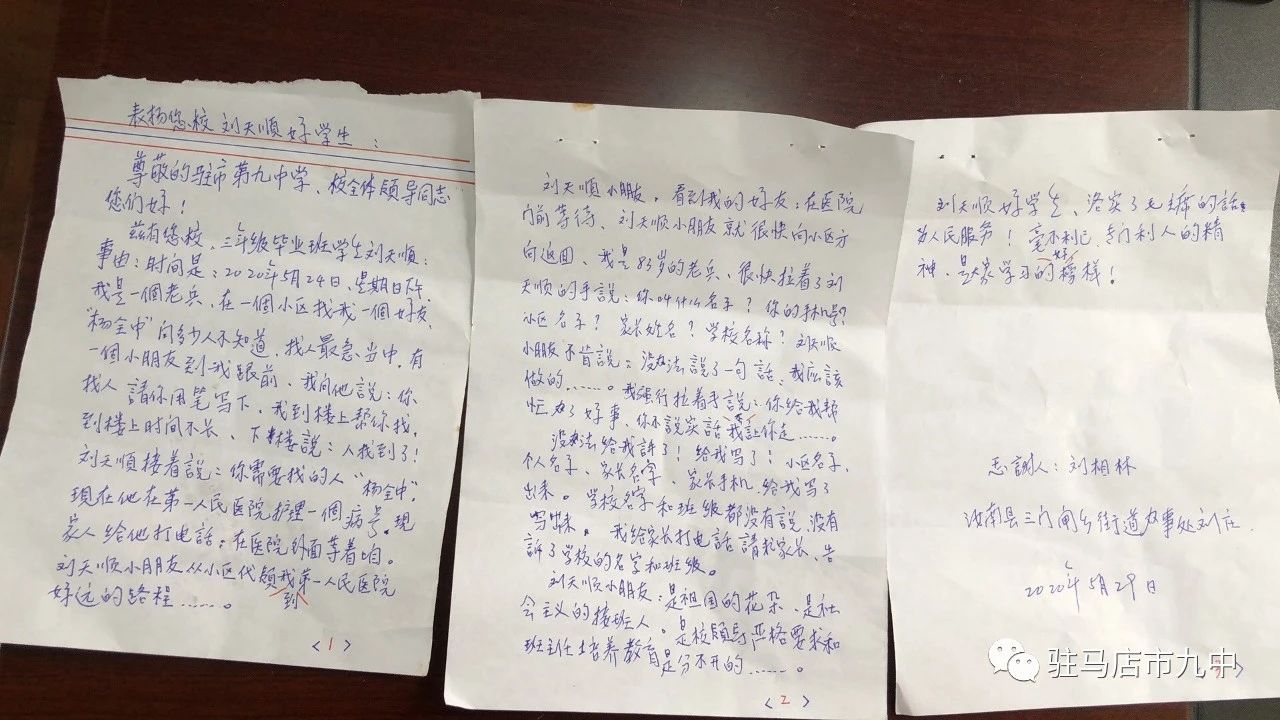 表扬您校刘天顺好学生:
尊敬的驻市第九中学、校全体领导同志
您们好!
兹有您校、三年级毕业班学生刘天顺:
事由:时间是:2020年5月24日、星期日下午、
我是一個老兵、在一個小区找我一個好友、
"杨全中"问多少人不知道、找人最急当中、有
一個小朋友到我跟前、我问他説:你
找人請你用笔写下、我到楼上帮你找、
到楼上时间不长、下楼説:人找到了!
刘天順接着説:你需要找的人"杨全中"、
現在他在第一人民医院护理一個病号。現
家人给他打电話:在医院外面等着咱。
刘天顺小朋友从小区代领我到第一人民医院
好远的路程……。
<1>
刘天順小朋友、看到我的好友:在医院
门前等待、刘天順小朋友就很快向小区方
向返回、我是83岁的老兵、很快拉着了刘
天顺的手説:你叫什么名子?你的手机号?
小区名子?家长姓名?学校名称?刘天顺
小朋友不肯説:没办法説了一句話、我应該
做的……。我强行拉着手説:你给我帮
忙办了好事、你不説实話我不让你走……。
没办法给我訴了!给我写了!小区名子、
个人名子、家长名字、家长手机、给我写了
出来。学校名字和班级都没有説、没有
写出来。我给家长打电話請求家长、告
訴了学校的名字和班级。
刘天顺小朋友:是祖国的花朵、是社
会主义的接班人。是校领导严格要求和
班主任培养教育是分不开的……。
<2>
刘天顺好学生、落实了毛主席的話:
为人民服务!毫不利己、专门利人的精
神、是大家学习的好榜样!
感謝人:刘相林
汝南县三门闸乡街道办事处刘庄
2020年5月29日
驻马店市九中